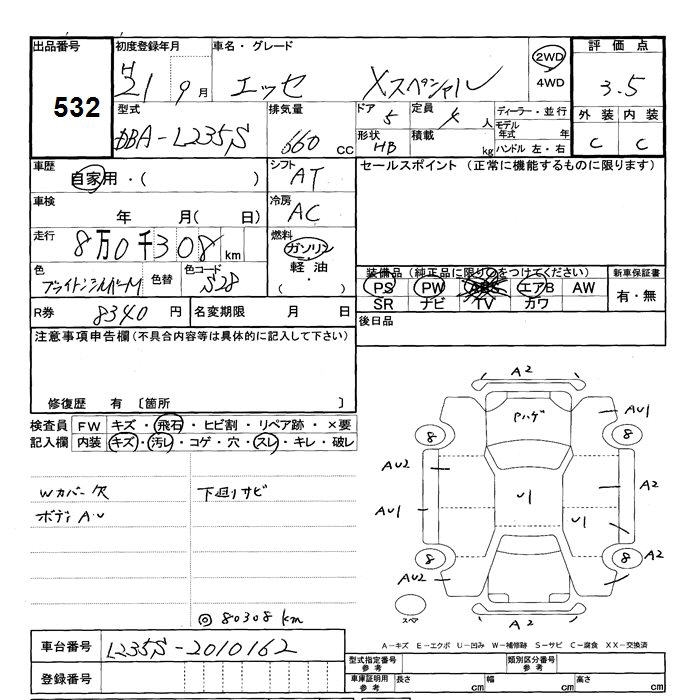 出品番号 初度登録年月 車名・グレード 評価点
532
H21 9月 エッセ Xスペシャル 2WD 4WD 3.5
型式 排気量 ドア 定員 ディーラー・並行 外装 内装
DBA-L235S 660cc 5 4人 モデル年式 年 C C
形状 HB 積載 kg ハンドル 左・右
車歴 シフト セールスポイント(正常に機能するものに限ります)
自家用・( ) AT
車検 冷房
年 月( 日) AC
走行 燃料
8万0千308km ガソリン
軽油
( )
色 色替 色コード 装備品(純正品に限り○をつけてください) 新車保証書
ブライトシルバーM S28 PS PW ABS エアB AW 有・無
SR ナビ TV カワ
R券 8340円 名変期限 月 日 後日品
注意事項申告欄(不具合内容等は具体的に記入して下さい)
修復歴 有 〔箇所 〕
検査員 FW キズ・飛石・ヒビ割・リペア跡・×要
記入欄 内装 キズ・汚レ・コゲ・穴・スレ・キレ・破レ
Wカバー欠 下廻りサビ
ボディA・U
◎80308km
A2
Pハゲ
AU1
8 8
AU2
A2
AU1
U1
U1
8 8 A2
AU2
スペア
A2
A-キズ E-エクボ U-凹み W-補修跡 S-サビ C-腐食 XX-交換済
車台番号 L235S-2010162
型式指定番号 参考 類別区分番号 参考
登録番号
車庫証明用 参考 長さ cm 幅 cm 高さ cm